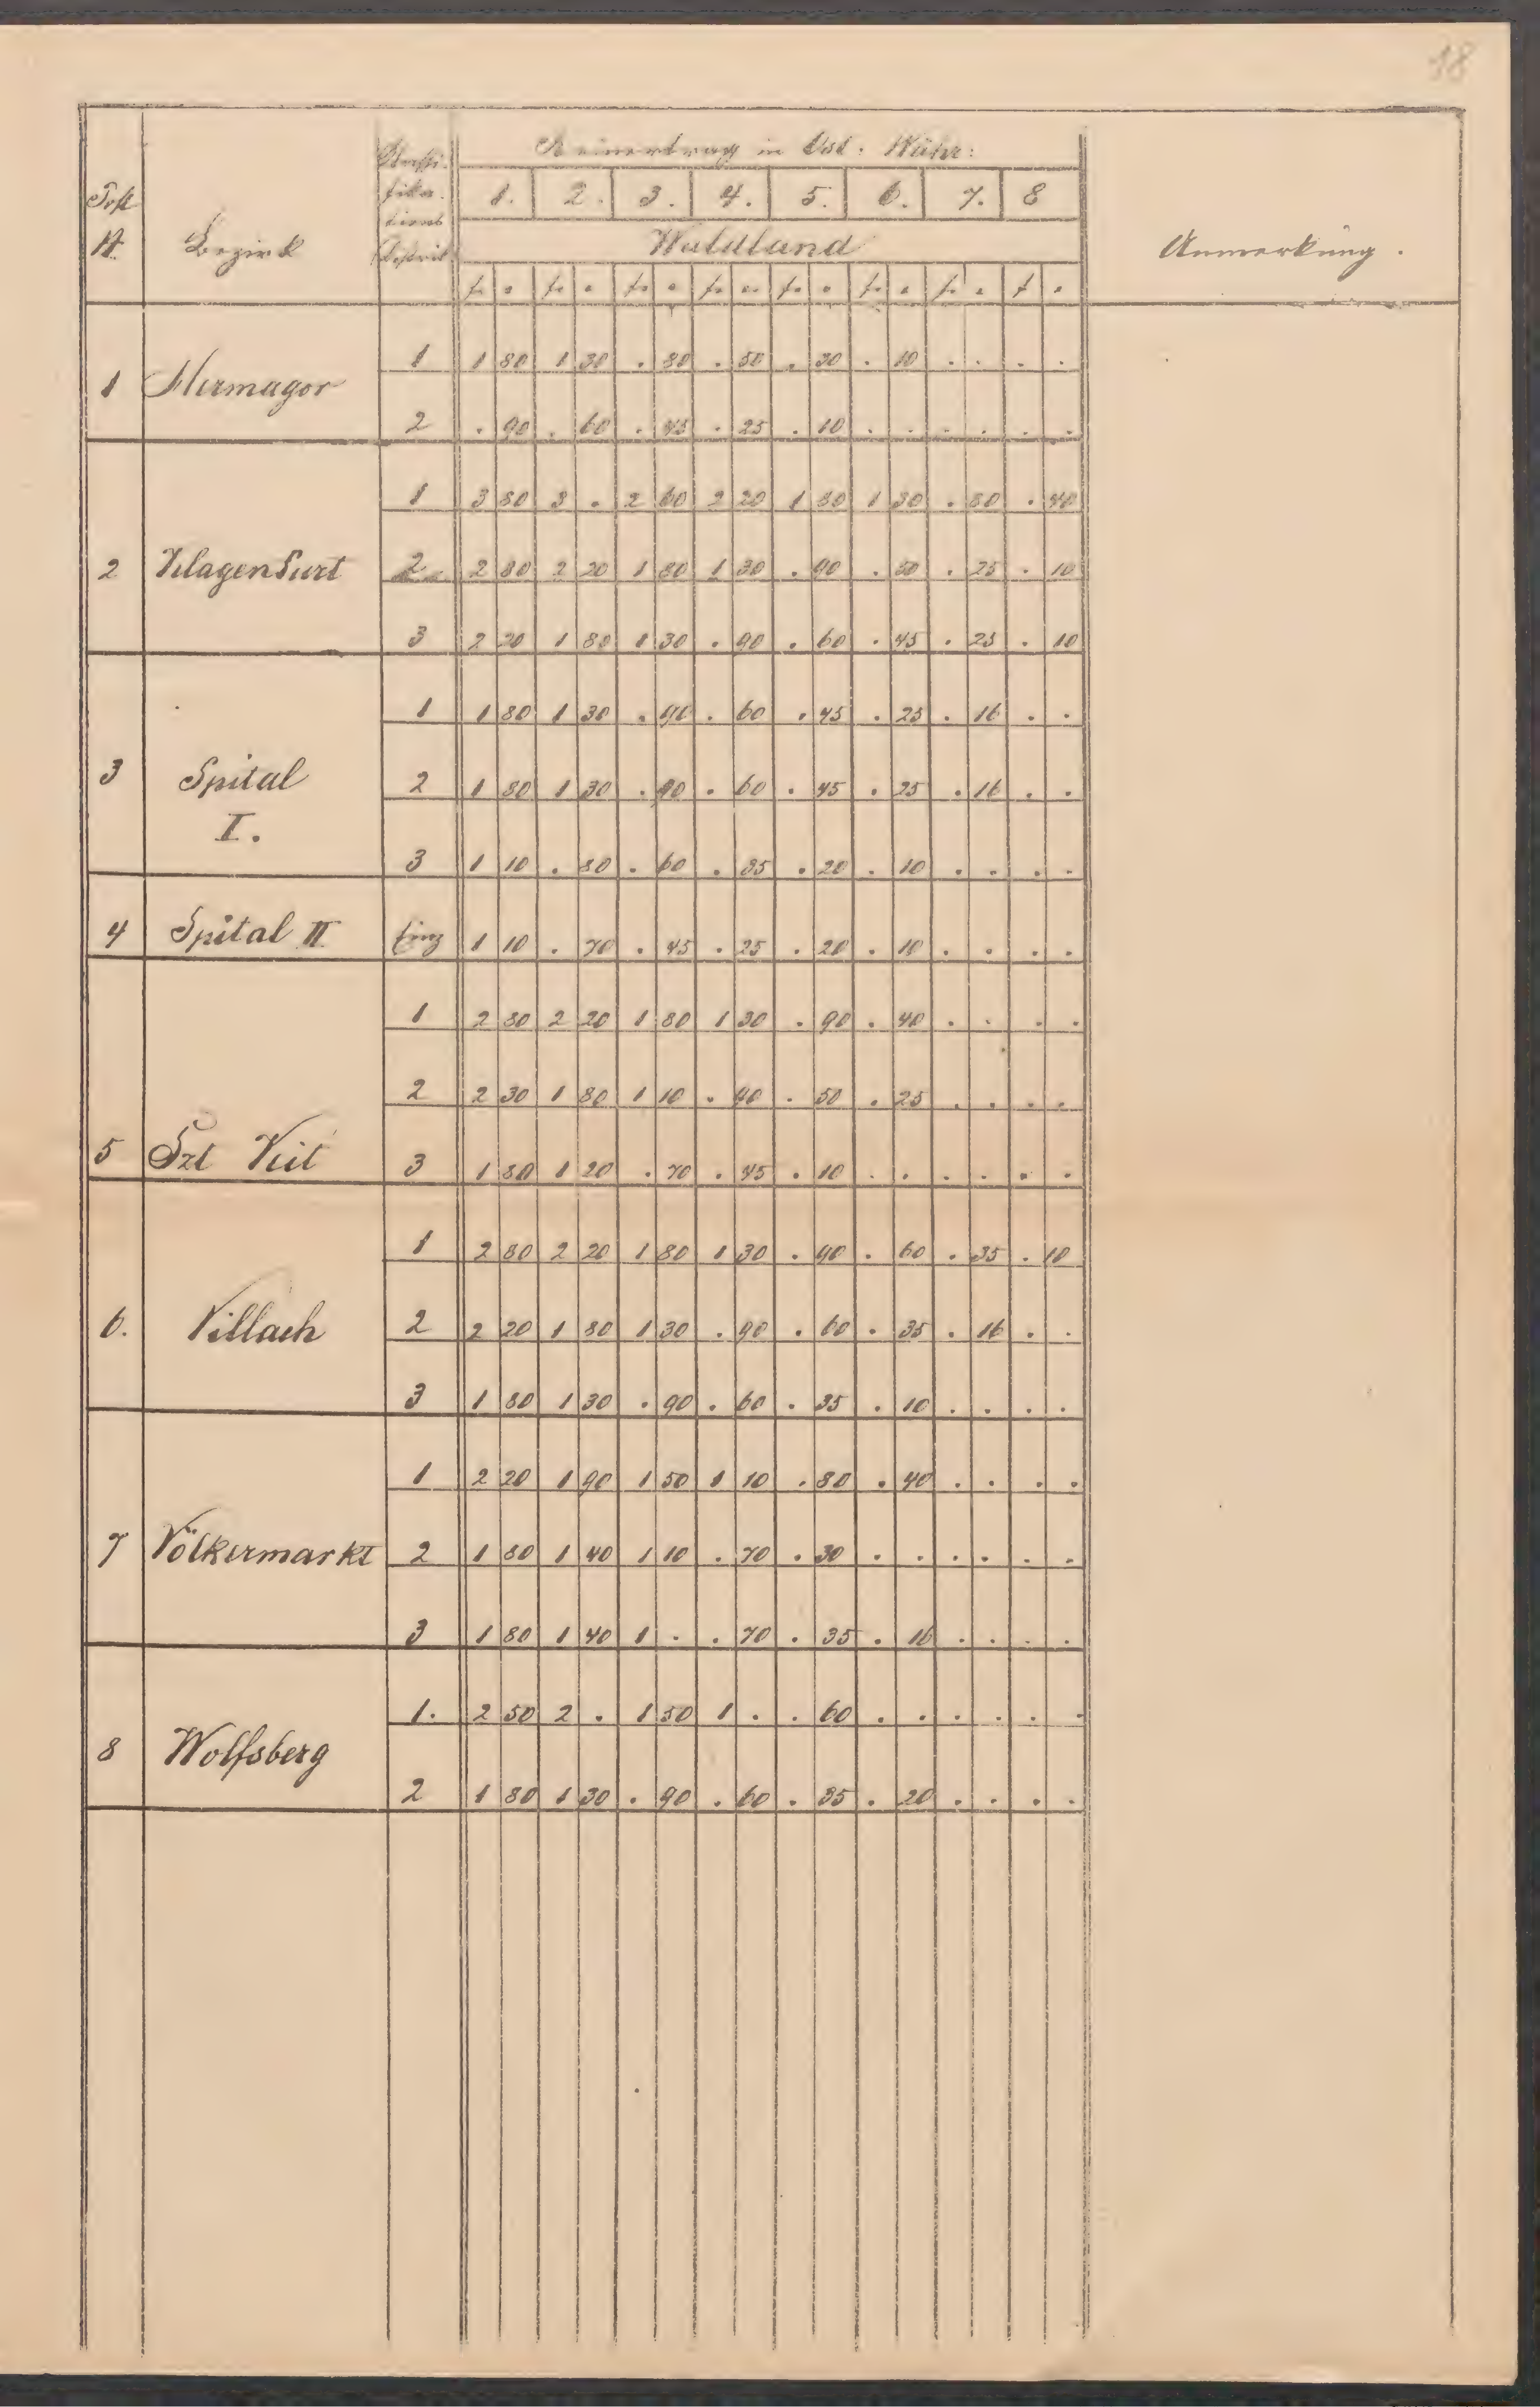 18
Reinertrag in Öst. Währ:
Post
N.
Bezirk
Klassi-
fika-
tions
Distrikt
1. 2. 3. 4. 5. 6. 7. 8
Waldland
Anmerkung.
f. . f. . f. . f. . f. . f. . f. . f .
1 Hermagor
1 1 80 1 30 . 80 . 50 . 30 . 10 . . . .
2 . 90 . 60 . 45 . 25 . 10 . . . . . .
2 Klagenfurt
1 3 80 3 . 2 60 2 20 1 80 1 30 . 80 . 40
2 2 80 2 20 1 80 1 30 . 90 . 50 . 25 . 10
3 2 20 1 80 1 30 . 90 . 60 . 45 . 25 . 10
3 Spital
I.
1 1 80 1 30 . 90 . 60 . 45 . 25 . 16 . .
2 1 80 1 30 . 90 . 60 . 45 . 25 . 16 . .
3 1 10 . 80 . 60 . 35 . 20 . 10 . . . .
4 Spital II
1 10 . 70 . 45 . 25 . 20 . 10 . . . .
5 Szt Veit
1 2 80 2 20 1 80 1 30 . 90 . 40 . . . .
2 2 30 1 80 1 10 . 90 . 50 . 25 . . . .
3 1 80 1 20 . 70 . 45 . 10 . . . . . .
6. Villach
1 2 80 2 20 1 80 1 30 . 90 . 60 . 35 . 10
2 2 20 1 80 1 30 . 90 . 60 . 35 . 16 . .
3 1 80 1 30 . 90 . 60 . 35 . 10 . . . .
7 Völkermarkt
1 2 20 1 90 1 50 1 10 . 80 . 40 . . . .
2 1 80 1 40 1 10 . 70 . 30 . . . . . .
3 1 80 1 40 1 . . 70 . 35 . 16 . . . .
8 Wolfsberg
1. 2 50 2 . 1 50 1 . . 60 . . . . . .
2 1 80 1 30 . 90 . 60 . 35 . 20 . . . .